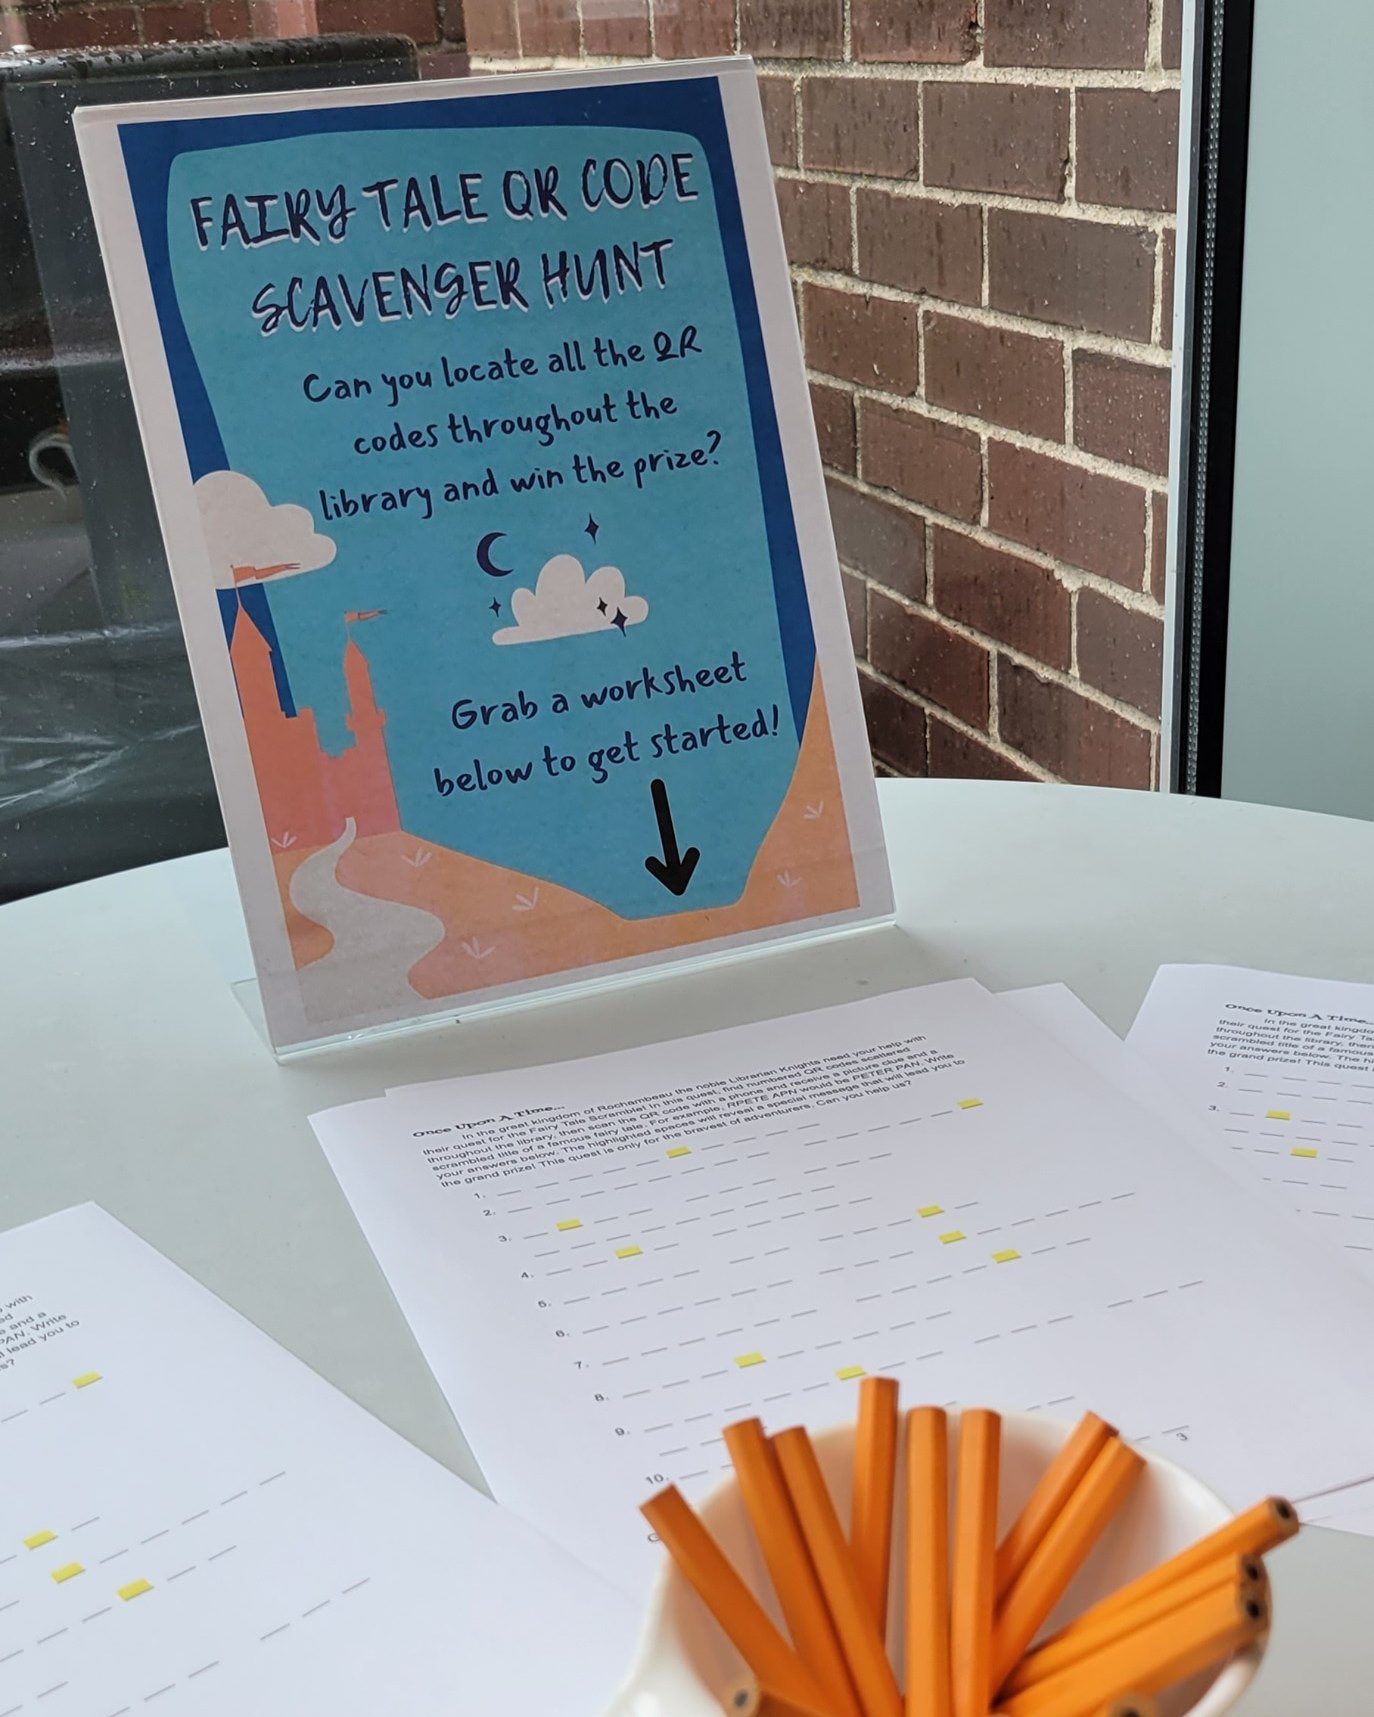 FAIRY TALE QR CODE
SCAVENGER HUNT
Can you locate all the QR
codes throughout the
library and win the prize?
Grab a worksheet
below to get started!
Once Upon A Time...
In the great kingdom of Rochambeau the noble Librarian Knights need your help with
their quest for the Fairy Tale Scramble! In this quest, find numbered QR codes scattered
throughout the library, then scan the QR code with a phone and receive a picture clue and a
scrambled title of a famous fairy tale. For example, RPETE APN would be PETER PAN. Write
your answers below. The highlighted spaces will reveal a special message that will lead you to
the grand prize! This quest is only for the bravest of adventurers. Can you help us?
1.
2.
3.
4.
5.
6.
7.
8.
9.
10.
3
Once Upon A Time...
In the great kingdo
their quest for the Fairy Ta
throughout the library, then
scrambled title of a famous
your answers below. The hi
the grand prize! This quest
1.
2.
3.
with
and a
PAN. Write
lead you to
s?